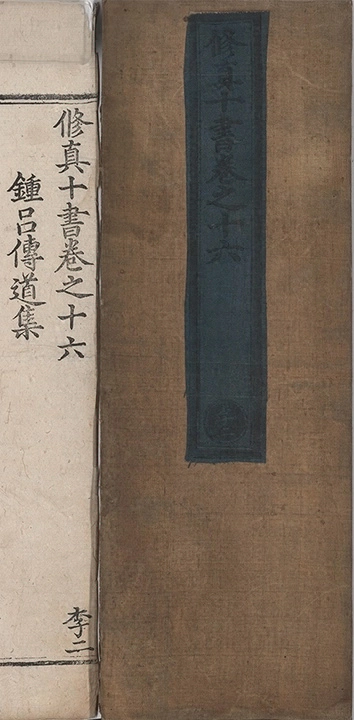 修真十書卷之十六
修真十書卷之十六
李二
鍾呂傳道集